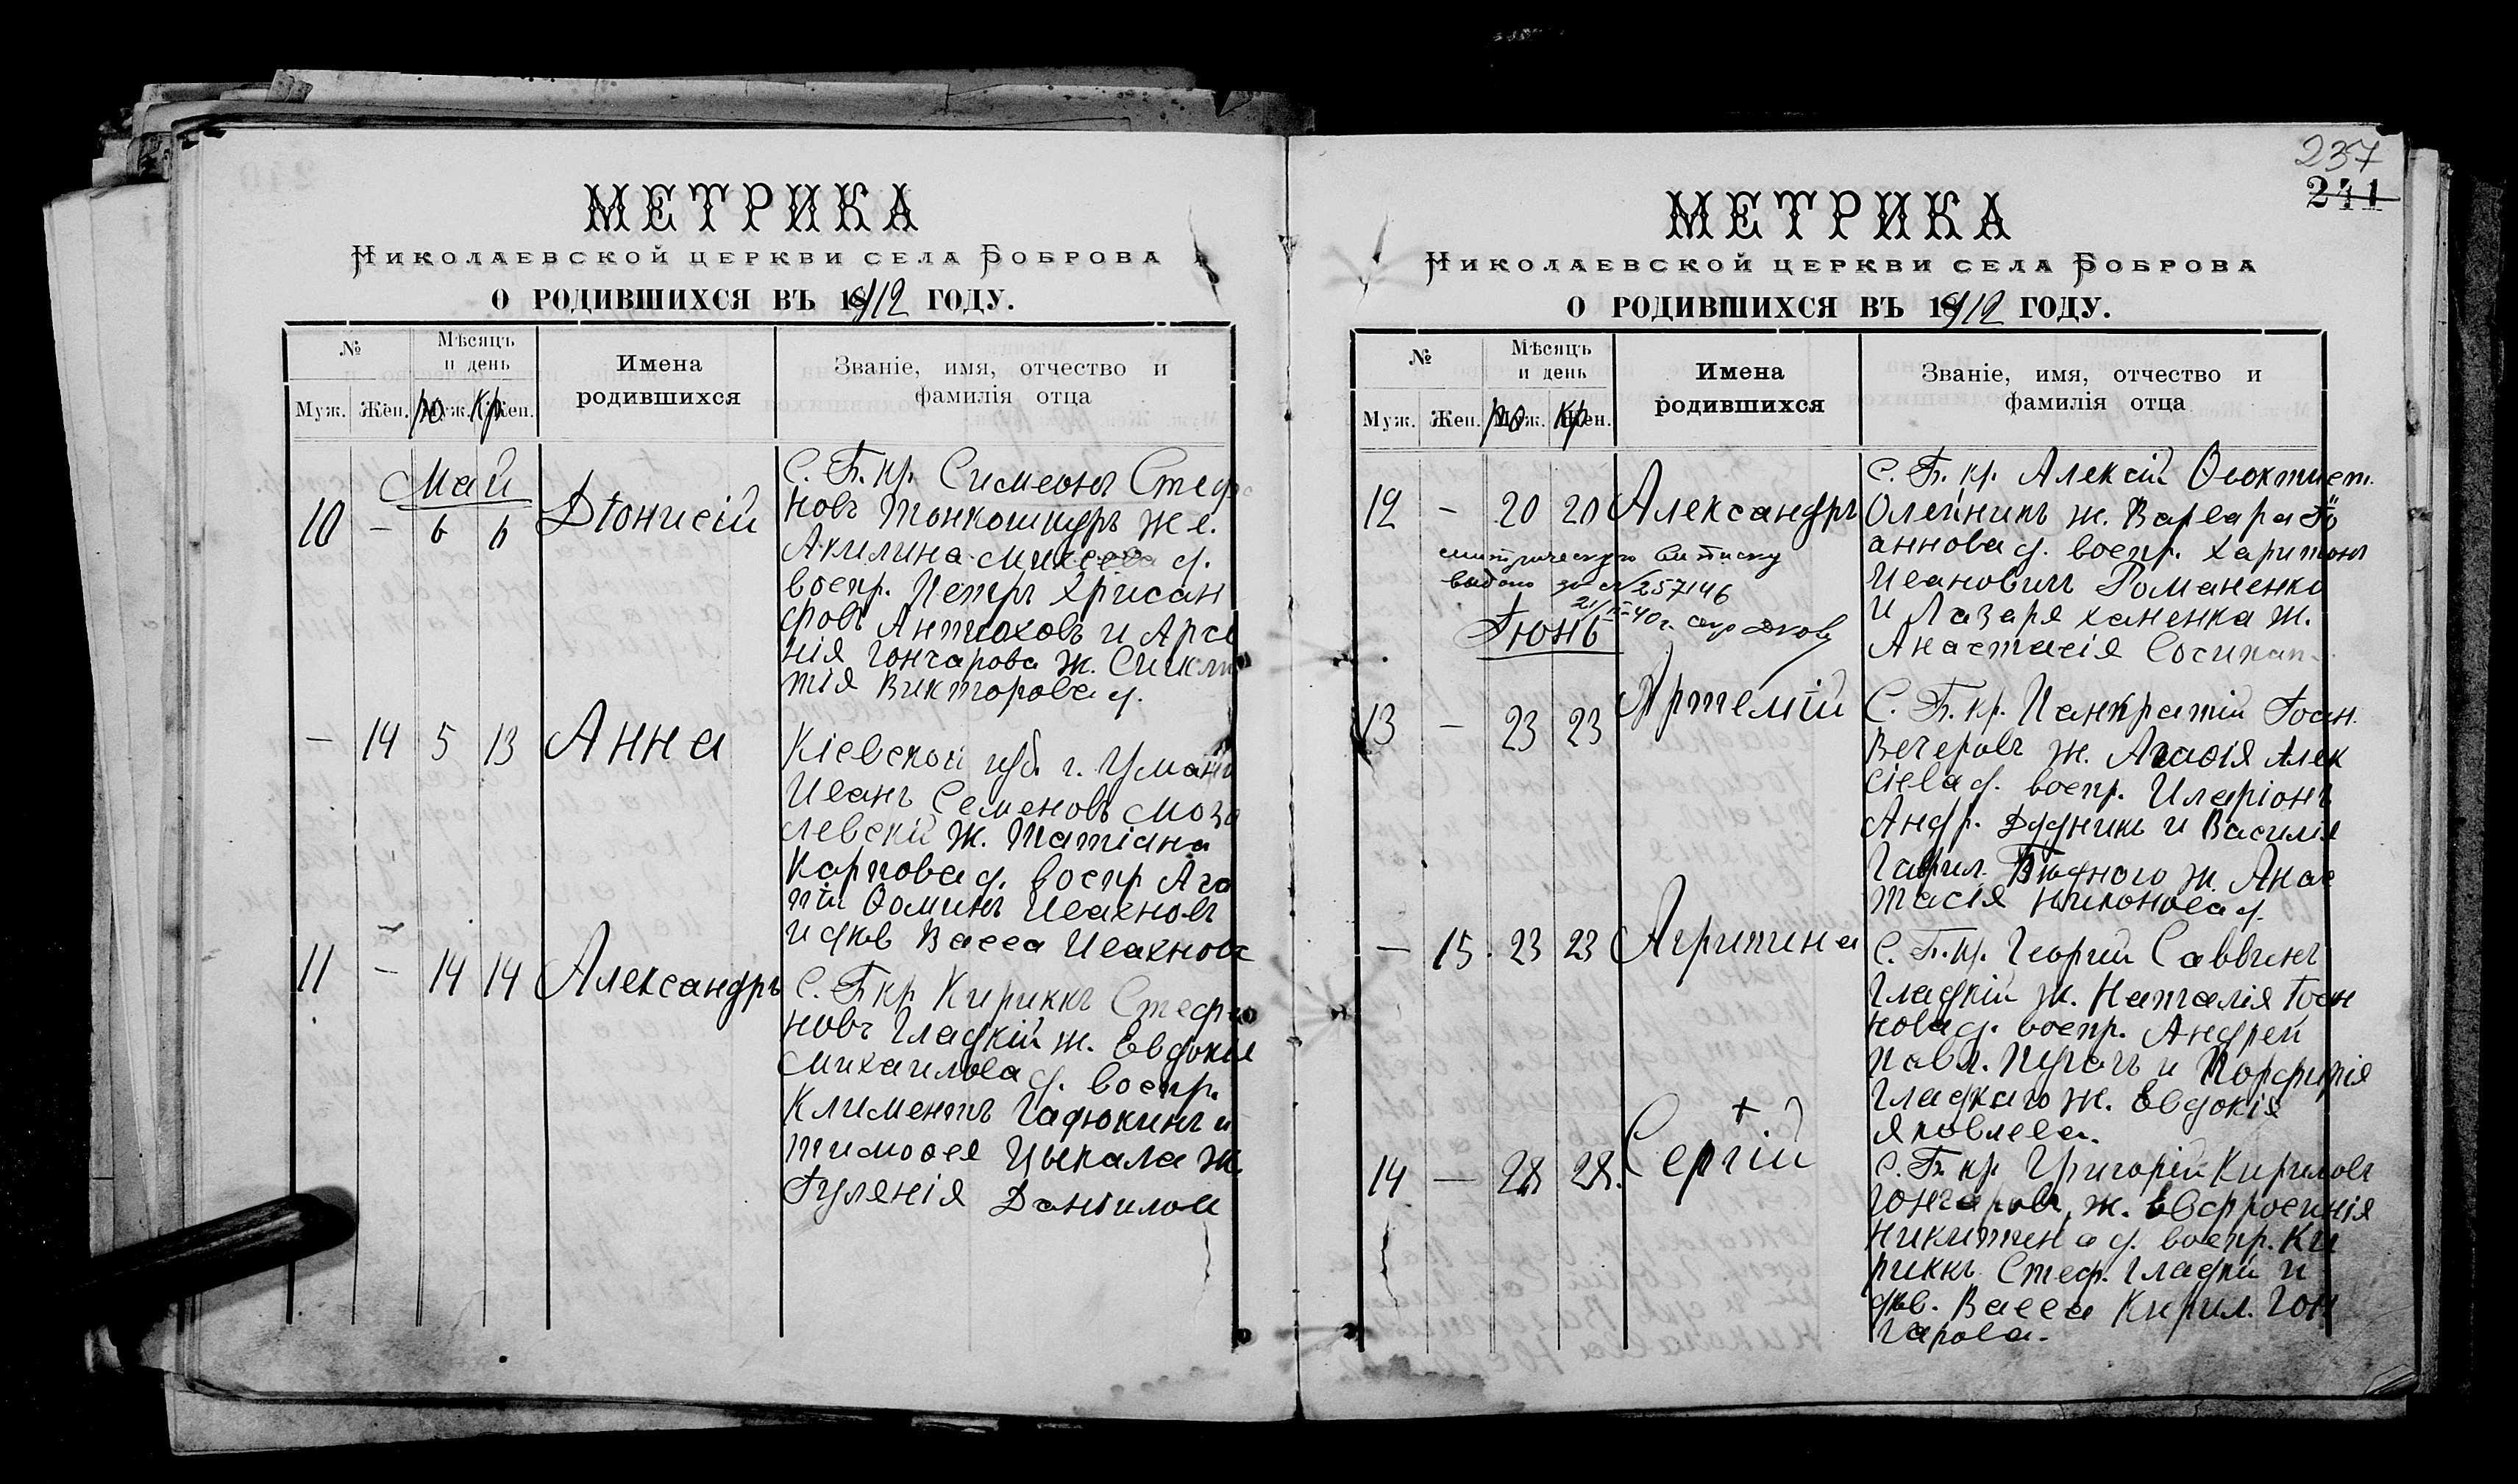 МЕТРИКА
Николаевской церкви села Боброва
о родившихся въ 1912 году.
№
Мѣсяцъ и день
Имена родившихся
Званіе, имя, отчество и фамилія отца
Муж. Жен. Муж. Жен.
ро кр
Май
10 — 6 6 Діонисій
С. Б. кр. Симеонъ Стефа
новъ Тонкошкуръ же.
Акилина Михеева д.
воспр. Петръ Хрисан
фовъ Антиоховъ и Арсе
нія Гончарова ж. Синкли
тія Викторова д.
— 14 5 13 Анна
Кіевской губ. г. Умани
Иванъ Семеновъ Моза
левскій ж. Татіана
Карпова д. воспр Ага
пій Ѳоминъ Ивахновъ
и дѣв Васса Ивахнова
11 — 14 14 Александръ
С. Б кр Кириккъ Стефа
новъ Гладкій ж. Евдокія
Михаилова д. воспр.
Климентъ Гадюкинъ и
Тимоѳея Цыкала ж.
Іулянія Данілова
237
241
МЕТРИКА
Николаевской церкви села Боброва
о родившихся въ 1912 году.
№
Мѣсяцъ и день
Имена родившихся
Званіе, имя, отчество и фамилія отца
Муж. Жен. Муж. Жен.
ро кр
12 — 20 20 Александръ
С. Б. кр. Алексій Ѳеоктист.
Олейникъ ж. Варвара Іо
аннова д. воспр. Харитонъ
Ивановичъ Романенко
и Лазаря Ханенка ж.
Анастасія Сосипат
выдано за № 257146
Іюнь
13 — 23 23 Артемій
С. Б. кр. Панкратій Іоан.
Вечеровъ ж. Агаѳія Алек
сіева д. воспр. Иларіонъ
Андр. Дудникъ и Василія
Гаврил. Бѣдного ж. Анас
тасія Никонова д.
— 15. 23 23 Агрипина
С. Б. кр. Георгій Саввинъ
Гладкій ж. Наталія Іоан
нова д. воспр. Андрей
Павл. Пугачъ и Порфирія
Гладкаго ж. Евдокія
Яковлева.
14 — 28 28. Сергій
+
С. Б. кр Григорій Кириловъ
Гончаровъ, ж. Евфросинія
Никитина д. воспр. Ки
риккъ Стеф. Гладкій и
дѣв. Васса Кирил. Гон
чарова.